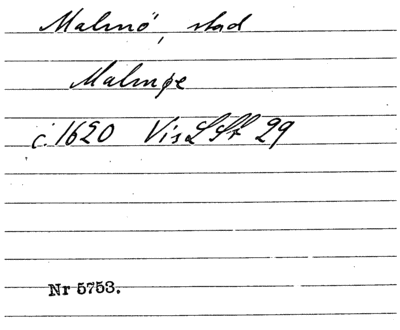 Malmö, stad
Malmøe
c. 1620 Vis LSt 29
Nr 5753.